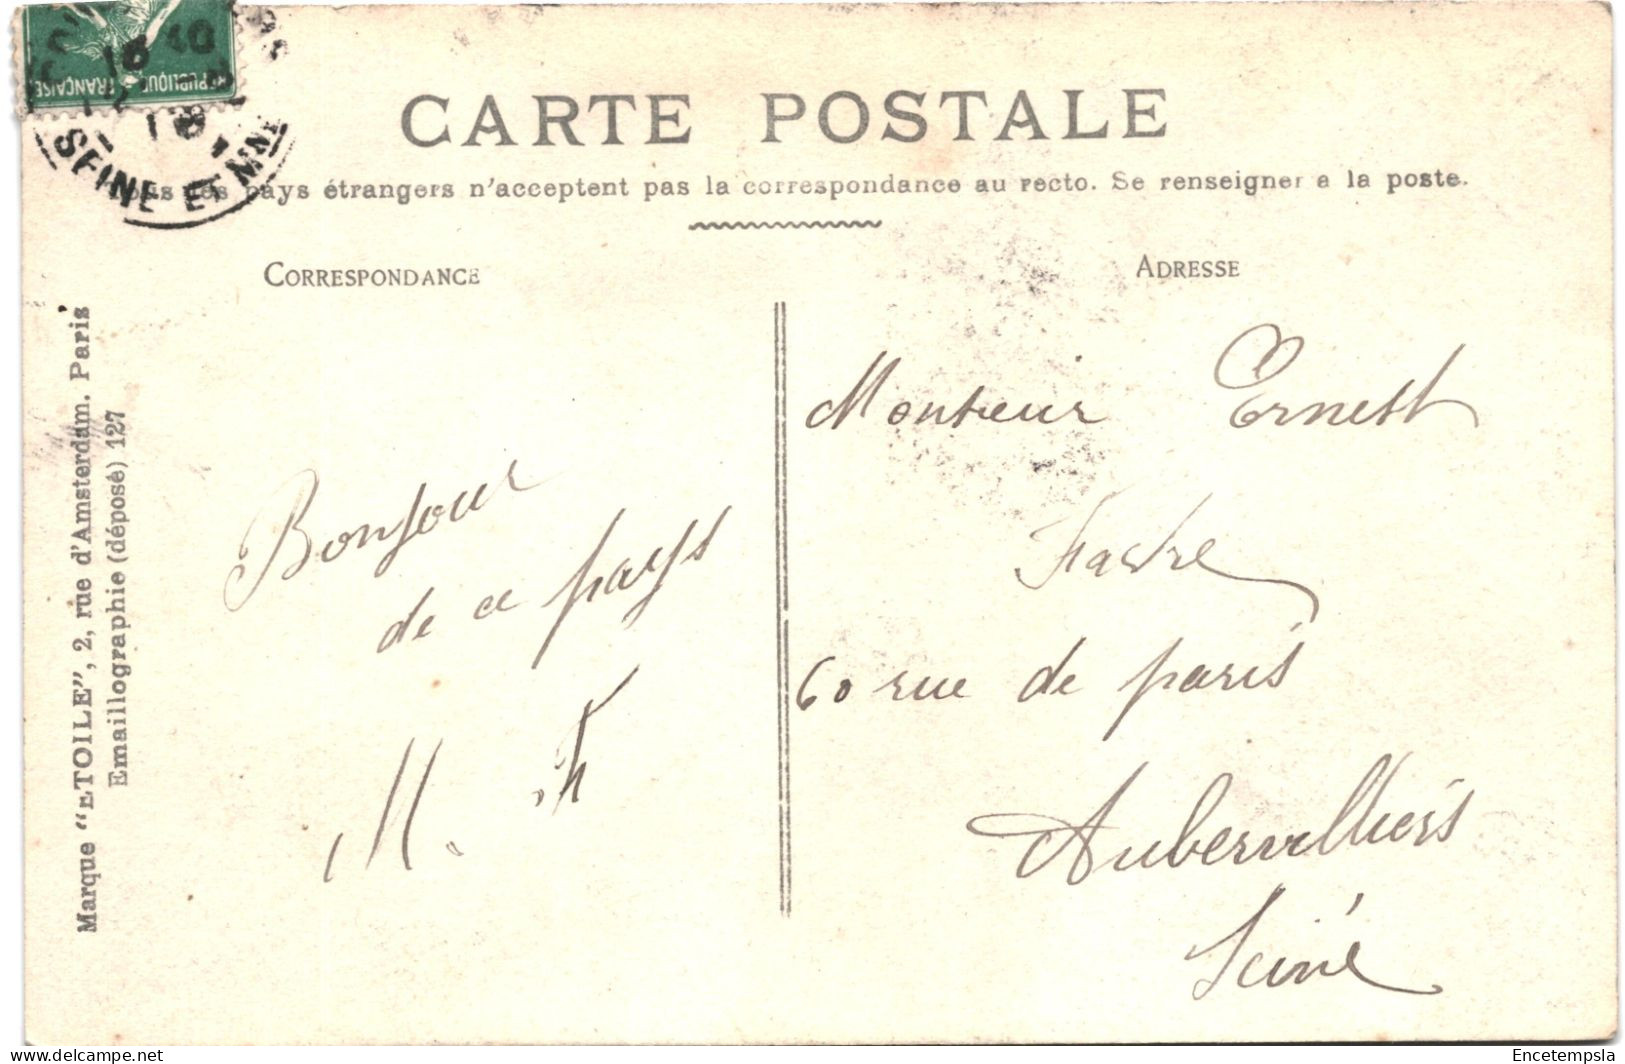 RÉPUBLIQUE FRANÇAISE
16 40
SEINE ET MNE
CARTE POSTALE
Tous les pays étrangers n'acceptent pas la correspondance au recto. Se renseigner a la poste.
CORRESPONDANCE
ADRESSE
Marque "ETOILE", 2, rue d'Amsterdam. Paris
Emaillographie (déposé) 127
Bonjour
de ce pays
M. F
Monsieur Ernest
Favre
60 rue de paris
Aubervilliers
Seine
Encetempsla
delcampe.net